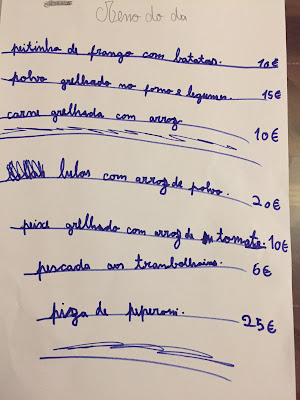 Meno do dia
peitinho de frango com batatas. 10€
polvo grelhado no forno e legumes. 15€
carne grelhada com arroz 10€
lulas com arroz de polvo. 20€
peixe grelhado com arroz de tomate. 10€
pescada aos 6€
pizza de peperoni. 25€